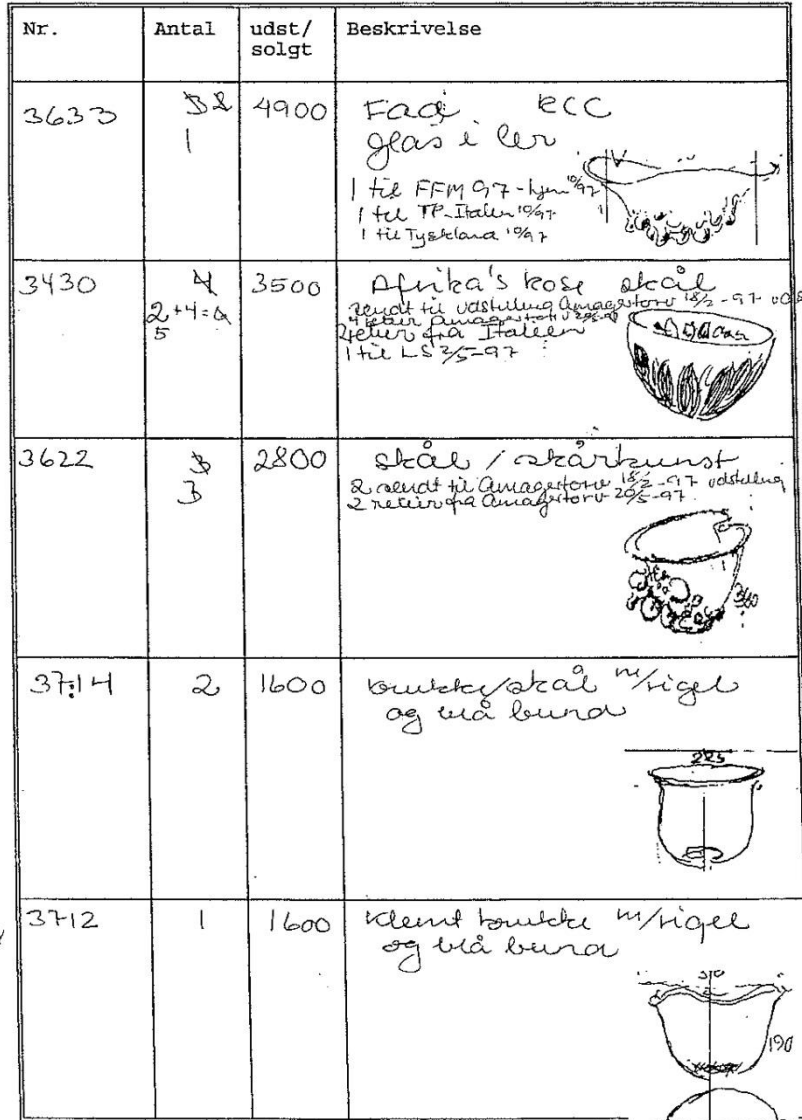 Nr. Antal udst/ Beskrivelse
solgt
3633 32 4900 Fad ECC
1 glas i ler
1 til FFM 97 - hjem 10/97
1 til TP-Italien 10/97
1 til Tyskland 10/97
3430 4 3500 Afrika's kose skål
2+4=6 sendt til udstilling Amagertorv 18/2-97
5 4 retur Amagertorv
2 retur fra Italien
1 til LS 2/5-97
3622 3 2800 skål / skårkunst
3 2 sendt til Amagertorv 18/2-97 udstilling
2 retur fra Amagertorv 20/5-97
340
37:14 2 1600 krukke/skål m/rigel
og blå bund
225
3712 1 1600 klemt krukke m/rigel
og blå bund
310
190